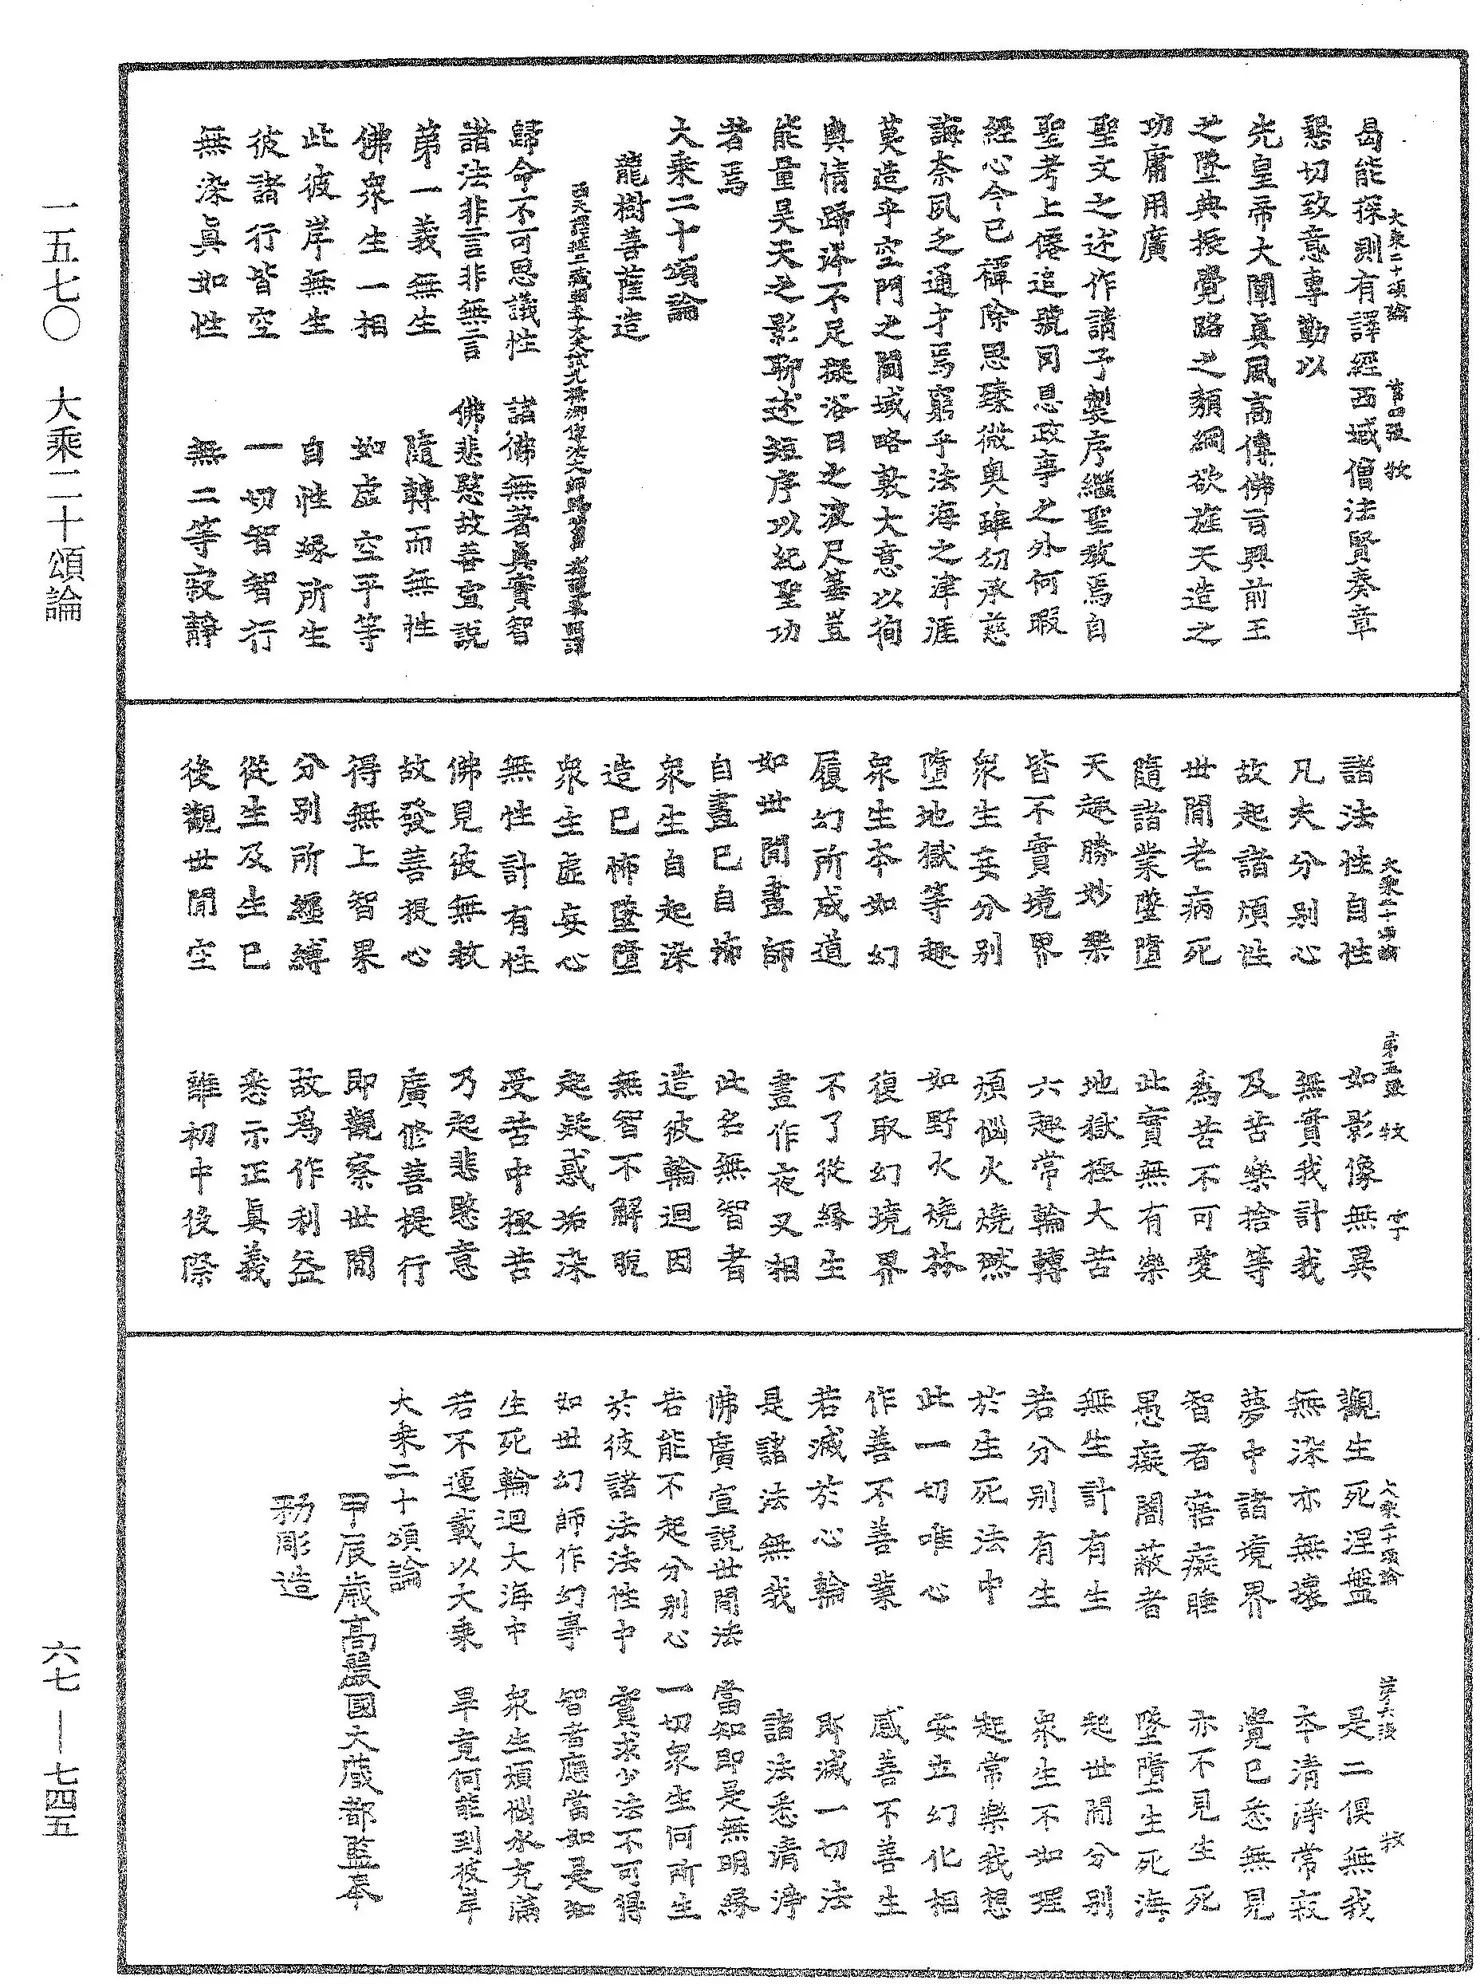 大乘二十頌論　第四張　牧
曷能探測有譯經西域僧法賢奏章
懇切致意專勤以
先皇帝大闡真風高傳佛旨興前王
之墜典振覺路之頹綱欲旌天造之
功庸用廣
聖文之述作請予製序繼聖教焉自
聖考上僊追號罔思政事之外何暇
經心今已禫除思臻微奧雖幼承慈
誨奈夙乏通才焉窮乎法海之津涯
莫造乎空門之閫域略敷大意以徇
輿情蹄涔不足擬浴日之波尺箠豈
能量昊天之影聊述短序以紀聖功
者焉
大乘二十頌論
龍樹菩薩造
歸命不可思議性　諸佛無著眞實智
諸法非言非無言　佛悲愍故善宣說
第一義無生　隨轉而無性
佛衆生一相　如虛空平等
此彼岸無生　自性緣所生
彼諸行皆空　一切智智行
無染眞如性　無二等寂靜
大乘二十頌論　第五張　牧　字
諸法性自性　如影像無異
凡夫分別心　無實我計我
故起諸煩性　及苦樂捨等
世間老病死　爲苦不可愛
隨諸業墜墮　此實無有樂
天趣勝妙樂　地獄極大苦
皆不實境界　六趣常輪轉
衆生妄分別　煩惱火燒然
墮地獄等趣　如野火燒林
衆生本如幻　復取幻境界
履幻所成道　不了從緣生
如世間畫師　畫作夜叉相
自畫已自怖　此名無智者
衆生自起染　造彼輪迴因
造已怖墜墮　無智不解脫
衆生虛妄心　起疑惑垢染
無性計有性　受苦中極苦
佛見彼無救　乃起悲愍意
故發菩提心　廣修菩提行
得無上智果　即觀察世間
分別所纏縛　故爲作利益
從生及生已　悉示正眞義
後觀世間空　離初中後際
大乘二十頌論　第六張　牧
觀生死涅盤　是二俱無我
無染亦無壞　本清淨常寂
夢中諸境界　覺已悉無見
智者寤癡睡　亦不見生死
愚癡闇蔽者　墜墮生死海
無生計有生　起世間分別
若分別有生　衆生不如理
於生死法中　起常樂我想
此一切唯心　安立幻化相
作善不善業　感善不善生
若滅於心輪　即滅一切法
是諸法無我　諸法悉清淨
佛廣宣說世間法　當知即是無明緣
若能不起分別心　一切衆生何所生
於彼諸法法性中　實求少法不可得
如世幻師作幻事　智者應當如是知
生死輪迴大海中　衆生煩惱水充滿
若不運載以大乘　畢竟何能到彼岸
大乘二十頌論
甲辰歲高麗國大藏都監奉
勅彫造
一五七〇　大乘二十頌論　六七—七四五